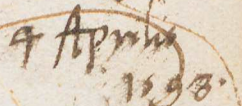 4 Aprilis
1698.